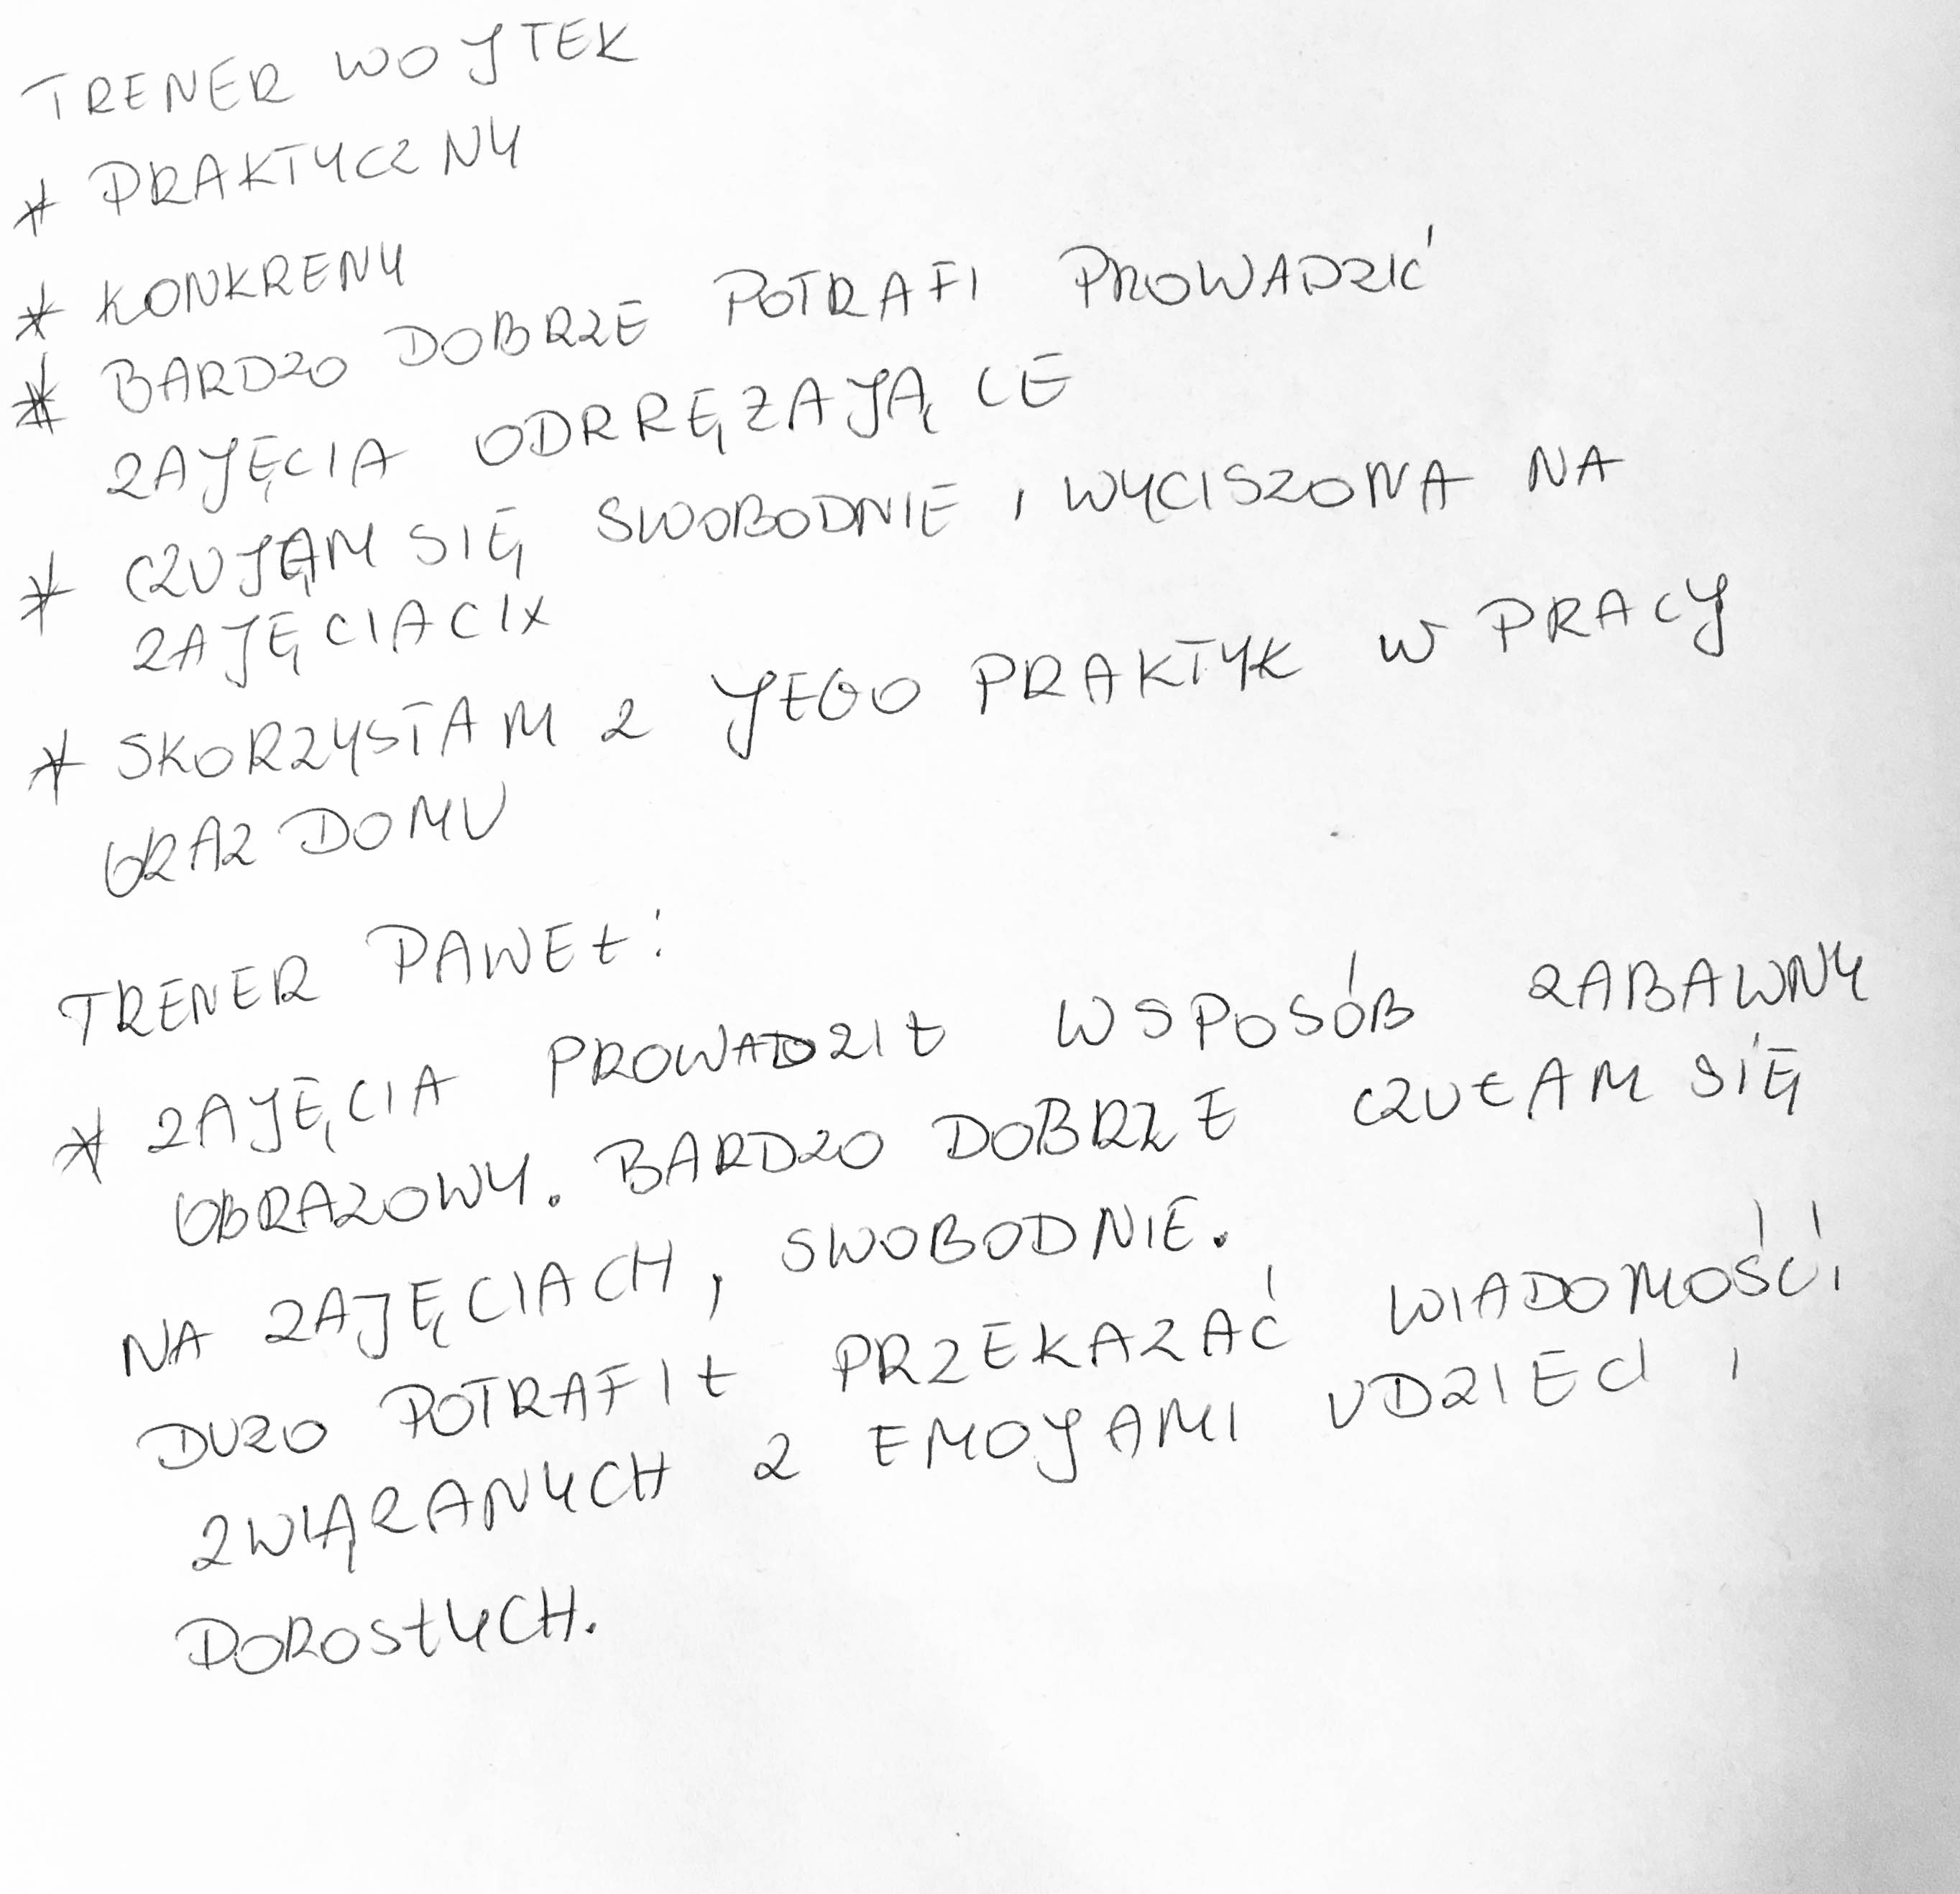 TRENER WOJTEK
* PRAKTYCZNY
* KONKRENY
* BARDZO DOBRZE POTRAFI PROWADZIĆ
ZAJĘCIA ODRRĘŻAJĄCE
* CZUJĘAM SIĘ SWOBODNIE I WYCISZONA NA
ZAJĘCIACIX
* SKORZYSTAM Z JEGO PRAKTYK W PRACY
ORAZ DOMU
TRENER PAWEŁ:
* ZAJĘCIA PROWADZIŁ W SPOSÓB ZABAWNY
OBRAZOWY. BARDZO DOBRZE CZUŁAM SIĘ
NA ZAJĘCIACH, SWOBODNIE.
DUZO POTRAFIŁ PRZEKAZAĆ WIADOMOŚCI
ZWIĄRANYCH Z EMOJAMI U DZIECI I
DOROSŁYCH.